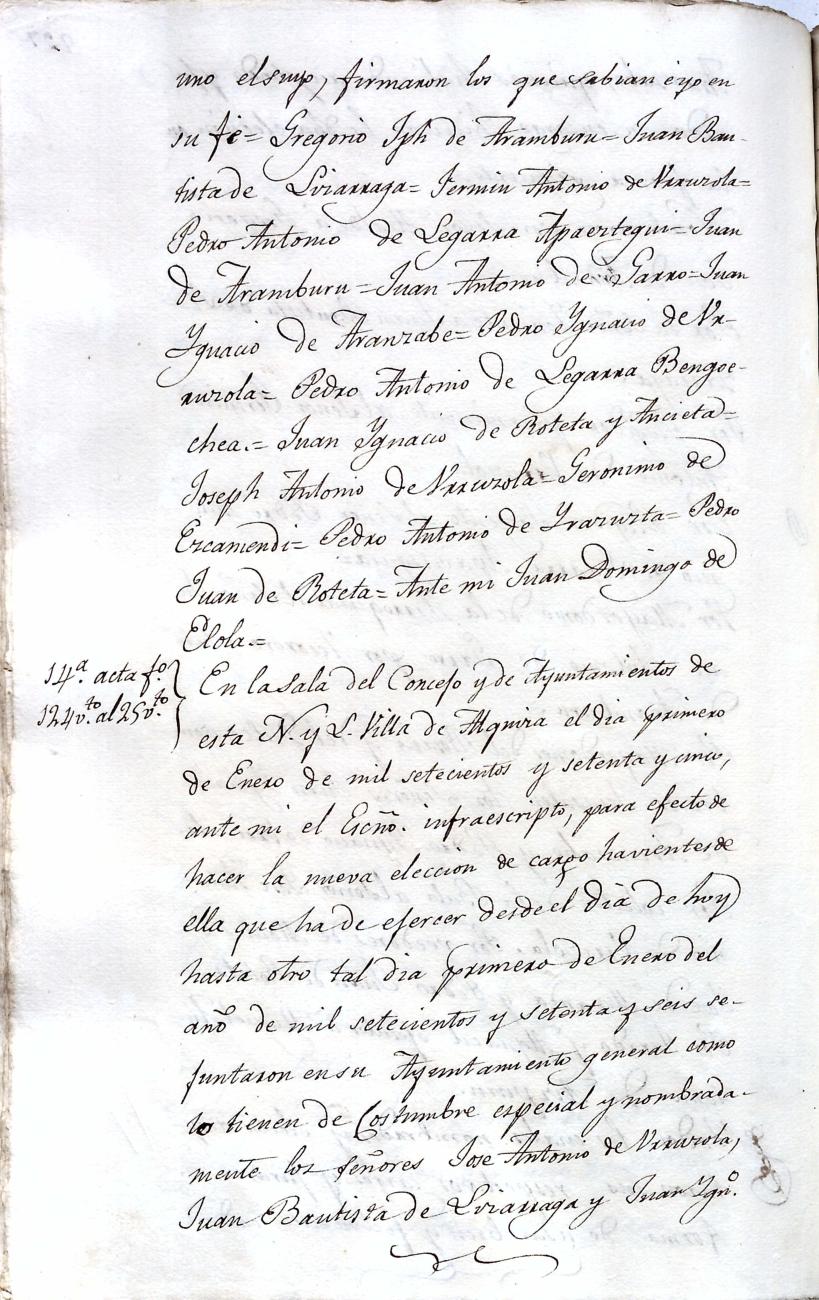 uno el suyo, firmaron los que sabian é yo en
su fe= Gregorio Jph de Aramburu= Juan Bau-
tista de Lizarraga= Fermin Antonio de Vrruzola=
Pedro Antonio de Legarra Apaeztegui= Juan
de Aramburu= Juan Antonio de Garro= Juan
Ygnacio de Aranzabe= Pedro Ygnacio de Vr-
ruzola= Pedro Antonio de Legarra Bengoe-
chea.= Juan Ygnacio de Roteta y Ancieta=
Joseph Antonio de Vrruzola= Geronimo de
Ezcamendi= Pedro Antonio de Yrazuzta= Pedro
Juan de Roteta= Ante mi Juan Domingo de
Elola.=
14.ª acta fº.
124 v.to al 25 v.to
En la sala del Concejo y de Ayuntamientos de
esta N. y L. Villa de Alquiza el dia primero
de Enero de mil setecientos y setenta y cinco,
ante mi el Escño. infraescripto, para efecto de
hacer la nueva eleccion de cargo havientes de
ella que ha de ejercer desde el dia de hoy
hasta otro tal dia primero de Enero del
año de mil setecientos y setenta y seis se
juntaron en su Ayuntamiento general como
lo tienen de Costumbre especial y nombrada-
mente los señores Jose Antonio de Vrruzola,
Juan Bautista de Lizarraga y Juan Ygnº.